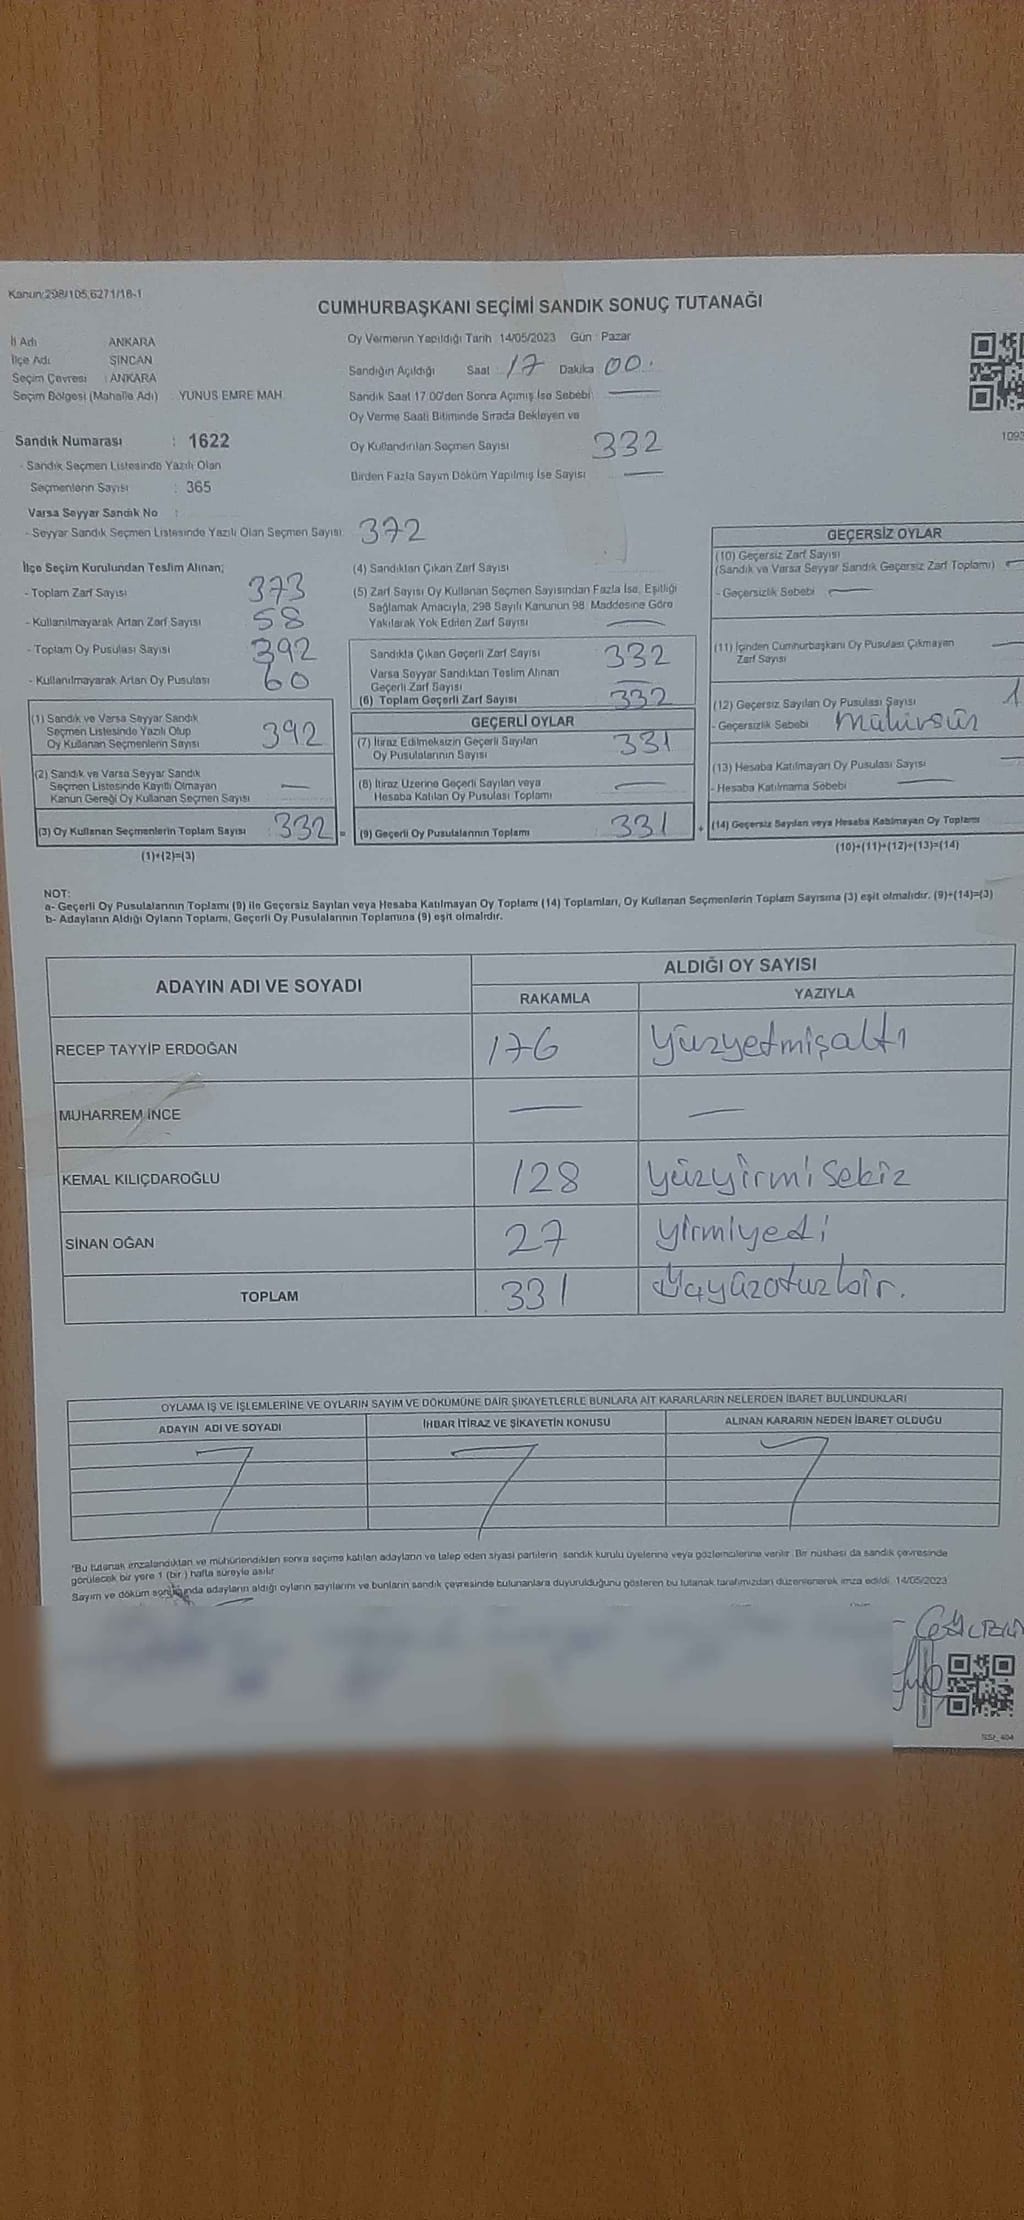 Kanun:298/105,6271/16-1
CUMHURBAŞKANI SEÇİMİ SANDIK SONUÇ TUTANAĞI
İl Adı ANKARA
İlçe Adı SİNCAN
Seçim Çevresi : ANKARA
Seçim Bölgesi (Mahalle Adı) YUNUS EMRE MAH.
Sandık Numarası : 1622
- Sandık Seçmen Listesinde Yazılı Olan
Seçmenlerin Sayısı : 365
Varsa Seyyar Sandık No :
- Seyyar Sandık Seçmen Listesinde Yazılı Olan Seçmen Sayısı: 372
Oy Vermenin Yapıldığı Tarih 14/05/2023 Gün : Pazar
Sandığın Açıldığı Saat : 17 Dakika 00
Sandık Saat 17.00'den Sonra Açımış İse Sebebi: —
Oy Verme Saati Bitiminde Sırada Bekleyen ve
Oy Kullandırılan Seçmen Sayısı 332
Birden Fazla Sayım Döküm Yapılmış İse Sayısı —
1093
İlçe Seçim Kurulundan Teslim Alınan;
- Toplam Zarf Sayısı 373
- Kullanılmayarak Artan Zarf Sayısı 58
- Toplam Oy Pusulası Sayısı 392
- Kullanılmayarak Artan Oy Pusulası 60
(1) Sandık ve Varsa Seyyar Sandık
Seçmen Listesinde Yazılı Olup
Oy Kullanan Seçmenlerin Sayısı 392
(2) Sandık ve Varsa Seyyar Sandık
Seçmen Listesinde Kayıtlı Olmayan
Kanun Gereği Oy Kullanan Seçmen Sayısı —
(3) Oy Kullanan Seçmenlerin Toplam Sayısı : 332 =
(1)+(2)=(3)
(4) Sandıktan Çıkan Zarf Sayısı
(5) Zarf Sayısı Oy Kullanan Seçmen Sayısından Fazla İse, Eşitliği
Sağlamak Amacıyla, 298 Sayılı Kanunun 98. Maddesine Göre
Yakılarak Yok Edilen Zarf Sayısı —
Sandıkta Çıkan Geçerli Zarf Sayısı 332
Varsa Seyyar Sandıktan Teslim Alınan
Geçerli Zarf Sayısı —
(6) Toplam Geçerli Zarf Sayısı 332
GEÇERLİ OYLAR
(7) İtiraz Edilmeksizin Geçerli Sayılan
Oy Pusulalarının Sayısı 331
(8) İtiraz Üzerine Geçerli Sayılan veya
Hesaba Katılan Oy Pusulası Toplamı —
(9) Geçerli Oy Pusulalarının Toplamı : 331 +
GEÇERSİZ OYLAR
(10) Geçersiz Zarf Sayısı
(Sandık ve Varsa Seyyar Sandık Geçersiz Zarf Toplamı) —
- Geçersizlik Sebebi —
(11) İçinden Cumhurbaşkanı Oy Pusulası Çıkmayan —
Zarf Sayısı
(12) Geçersiz Sayılan Oy Pusulası Sayısı 1
- Geçersizlik Sebebi mühürsür
(13) Hesaba Katılmayan Oy Pusulası Sayısı —
- Hesaba Katılmama Sebebi —
(14) Geçersiz Sayılan veya Hesaba Katılmayan Oy Toplamı
(10)+(11)+(12)+(13)=(14)
NOT:
a- Geçerli Oy Pusulalarının Toplamı (9) ile Geçersiz Sayılan veya Hesaba Katılmayan Oy Toplamı (14) Toplamları, Oy Kullanan Seçmenlerin Toplam Sayısına (3) eşit olmalıdır. (9)+(14)=(3)
b- Adayların Aldığı Oyların Toplamı, Geçerli Oy Pusulalarının Toplamına (9) eşit olmalıdır.
ADAYIN ADI VE SOYADI ALDIĞI OY SAYISI
RAKAMLA YAZIYLA
RECEP TAYYİP ERDOĞAN 176 yüzyetmişaltı
MUHARREM İNCE — —
KEMAL KILIÇDAROĞLU 128 yüzyirmisekiz
SİNAN OĞAN 27 yirmiyedi
TOPLAM 331 üçyüzotuzbir.
OYLAMA İŞ VE İŞLEMLERİNE VE OYLARIN SAYIM VE DÖKÜMÜNE DAİR ŞİKAYETLERLE BUNLARA AİT KARARLARIN NELERDEN İBARET BULUNDUKLARI
ADAYIN ADI VE SOYADI İHBAR İTİRAZ VE ŞİKAYETİN KONUSU ALINAN KARARIN NEDEN İBARET OLDUĞU
*Bu tutanak imzalandıktan ve mühürlendikten sonra seçime katılan adayların ve talep eden siyasi partilerin sandık kurulu üyelerine veya gözlemcilerine verilir. Bir nüshası da sandık çevresinde
görülecek bir yere 1 (bir) hafta süreyle asılır.
Sayım ve döküm sonucunda adayların aldığı oyların sayılarını ve bunların sandık çevresinde bulunanlara duyurulduğunu gösteren bu tutanak tarafımızdan düzenlenerek imza edildi. 14/05/2023